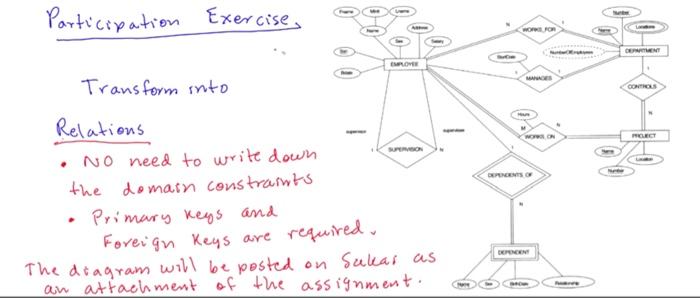 Participation Exercise.
Transform into
Relations
• NO need to write down
the domain constraints
• Primary keys and
Foreign Keys are required.
The diagram will be posted on Sakai as
an attachment of the assignment.
Fname
Minit
Lname
Name
Address
Sex
Salary
Ssn
Bdate
EMPLOYEE
N
WORKS_FOR
1
StartDate
NumberOfEmployees
1
MANAGES
1
Number
Name
Locations
DEPARTMENT
1
CONTROLS
N
Hours
M
WORKS_ON
N
PROJECT
Name
Location
Number
supervisor
supervisee
1
SUPERVISION
N
1
DEPENDENTS_OF
N
DEPENDENT
Name
Sex
BirthDate
Relationship